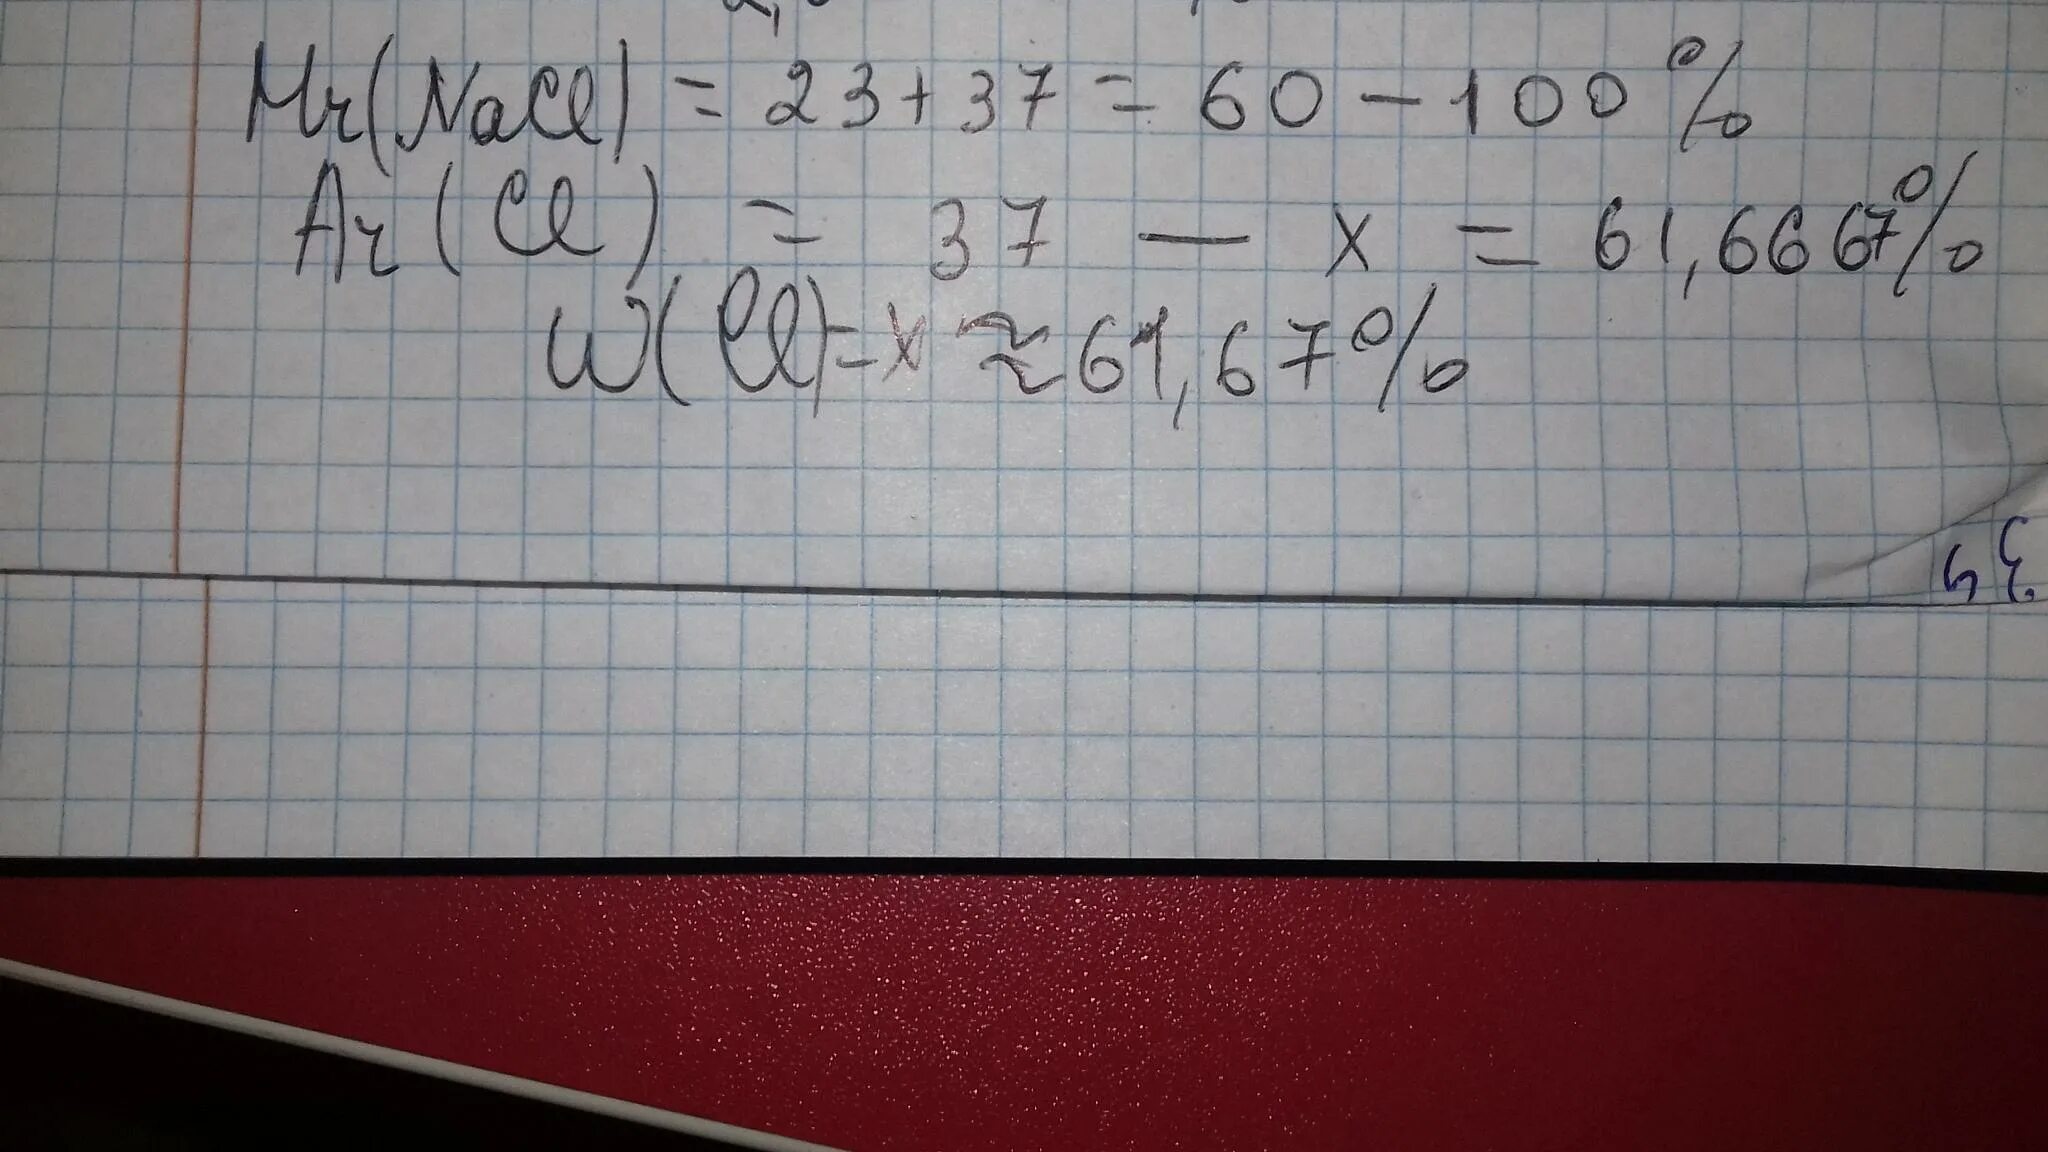 Mr(NaCl) = 23+37 = 60 – 100%
Ar(Cl) = 37 — x = 61,6667%
W(Cl)=x ≈ 61,67%